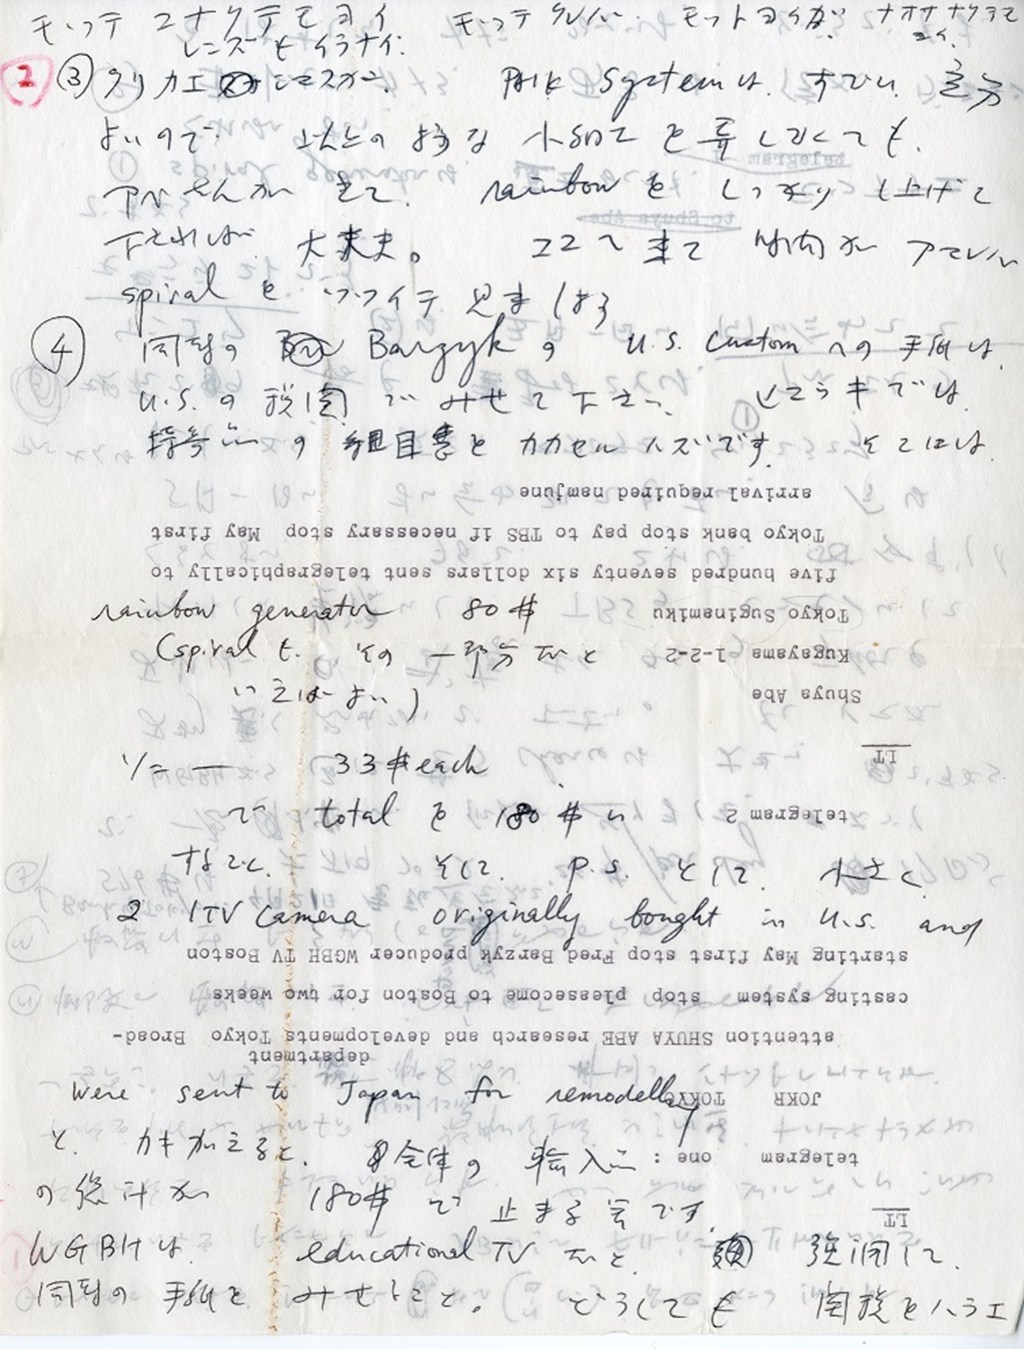 モッテ コナクテモヨイ モッテクレバ モットヨイガ ナオサナクテモ
ヨイ.
レンズモ イラナイ.
2 ③ クリカエシマスガ. Paik Systemは. すでに. 充分
よいので. 以上の 様な 小細工 を 弄しなくても.
アベさんが 来て. rainbow を しっかり 仕上げて
下されば. 大丈夫。 ココヘ 来て 時間が アマレバ
spiral を
④ 同封の Barzykの U.S. Custom への 手紙は.
U.S. の 税関 で みせて下さい.
の 細目書を カカセル ハズです. そこには.
arrival required namjune
Tokyo bank stop pay to TBS if necessary stop May first
five hundred seventy six dollars sent telegraphically to
rainbow generator 80 $
Tokyo Suginamiku
(spiral も. その 一部分 だと
Kugayama 1-2-2
いえばよい)
Shuya Abe
33 $ each
LT
で total を 180 $ に
telegram 2
すること. そして. P.S. として. 小さく
2 ITV Camera originally bought in U.S. and
starting May first stop Fred Barzyk producer WGBH TV Boston
casting system stop pleasecome to Boston for two weeks
attention SHUYA ABE research and developments Tokyo Broad-
department
were sent to Japan for remodelling
JOKR TOKYO
と. カキ加えると. 全体の 輸入品
telegram one :
の 総計が 180$ で 止まる 筈です.
LT
WGBHは. educational TV だと 強調して.
同封の 手紙を みせること。 どうしても 関税をハラエ
telegram
to Shuya Abe